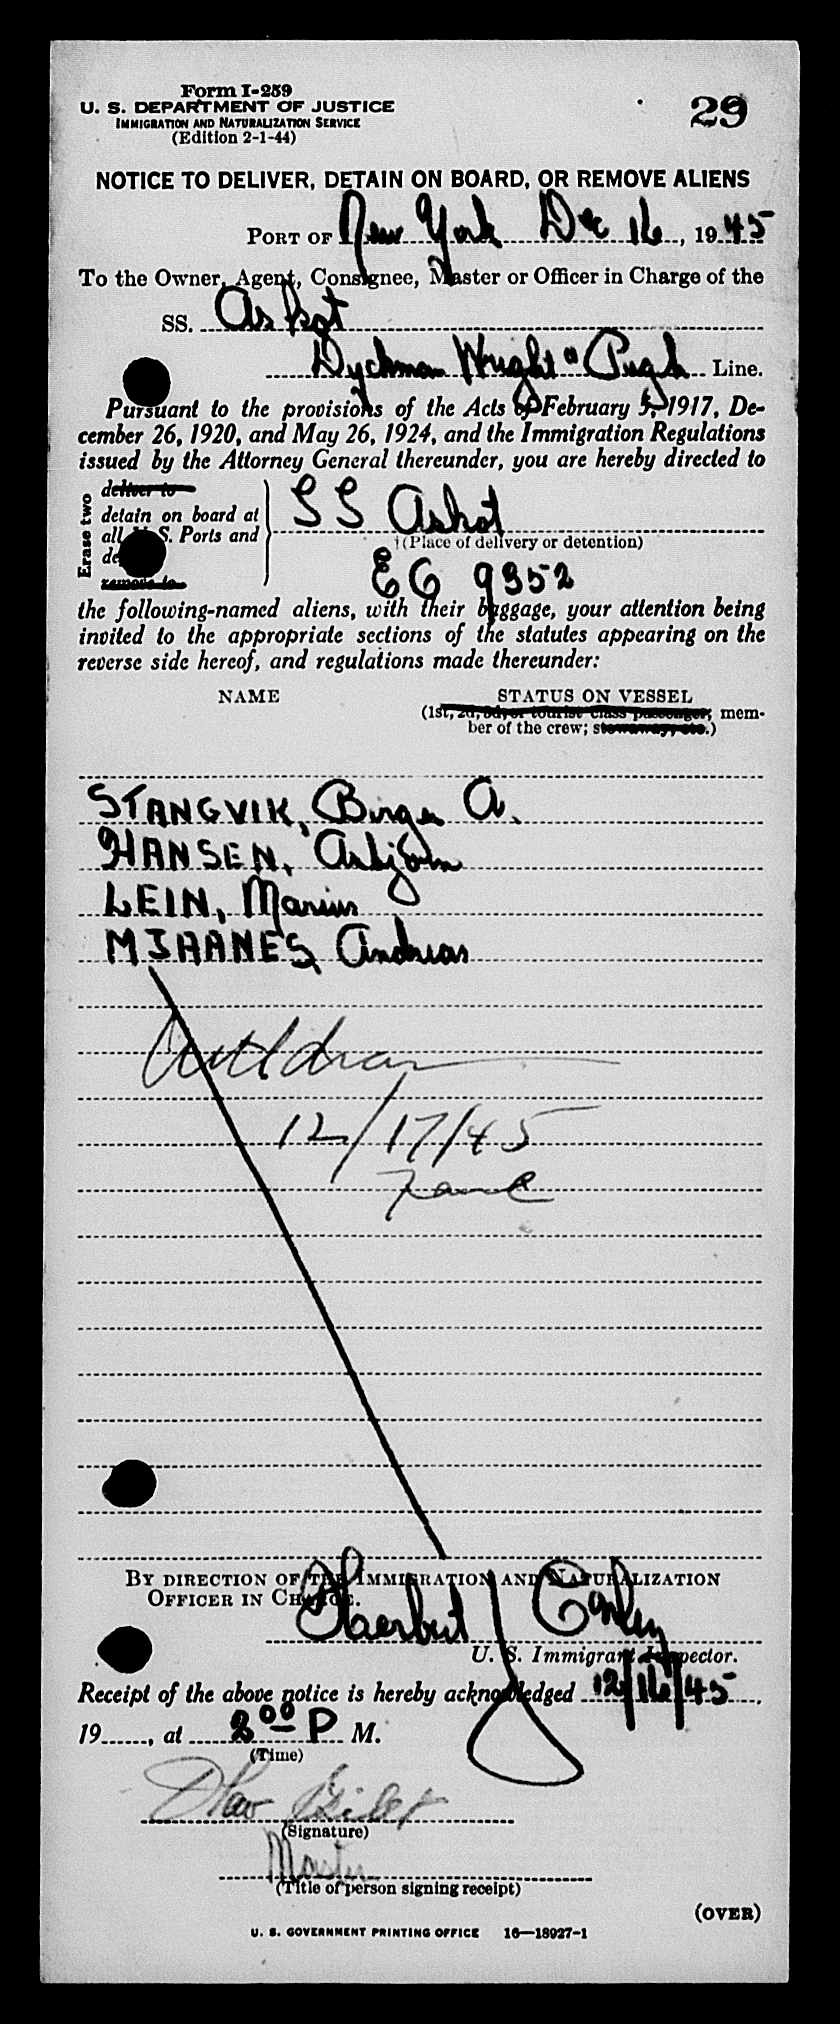 Form I-259
U. S. DEPARTMENT OF JUSTICE
IMMIGRATION AND NATURALIZATION SERVICE
(Edition 2-1-44)
29
NOTICE TO DELIVER, DETAIN ON BOARD, OR REMOVE ALIENS
PORT OF New York Dec 16, 1945
To the Owner, Agent, Consignee, Master or Officer in Charge of the
SS. Askot
Dyckman Wright & Pugh Line.
Pursuant to the provisions of the Acts of February 5, 1917, De-
cember 26, 1920, and May 26, 1924, and the Immigration Regulations
issued by the Attorney General thereunder, you are hereby directed to
Erase two
deliver to
detain on board at
all U. S. Ports and
de
remove to
SS Askot
†(Place of delivery or detention)
EG 9352
the following-named aliens, with their baggage, your attention being
invited to the appropriate sections of the statutes appearing on the
reverse side hereof, and regulations made thereunder:
NAME
STATUS ON VESSEL
(1st, 2d, 3d, or tourist class passenger; mem-
ber of the crew; stowaway, etc.)
STANGVIK, Birger A.
HANSEN, Asbjörn
LEIN, Marius
MJAANES, Andreas
12/17/45
BY DIRECTION OF THE IMMIGRATION AND NATURALIZATION
OFFICER IN CHARGE.
Herbert J Conley
U. S. Immigrant Inspector.
Receipt of the above notice is hereby acknowledged 12/16/45,
19, at 2 00 P M.
(Time)
Olav
(Signature)
Master
(Title of person signing receipt)
(OVER)
U. S. GOVERNMENT PRINTING OFFICE 16—18927-1